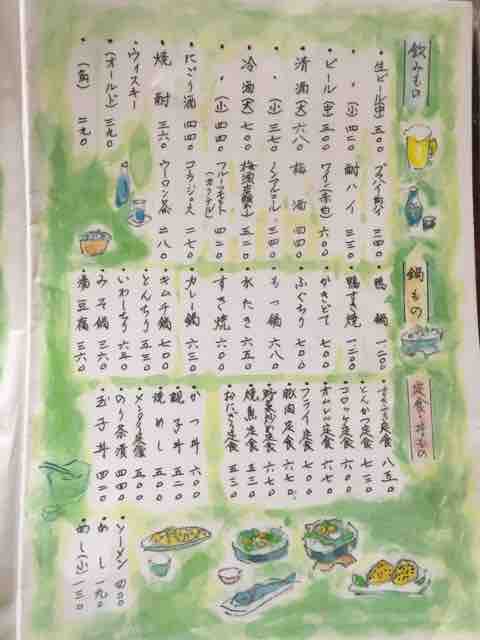 飲みもの
・生ビール(中) 五〇〇
・〃 (小) 四二〇
・ビール(中) 五〇〇
・清酒(大) 六八〇
・〃 (小) 三七〇
・冷酒(大) 七〇〇
・〃 (小) 四四〇
・にごり酒 四四〇
・焼酎 三六〇
・ウィスキー
(オールド) 三九〇
・(角) 二九〇
酎ハイ 三三〇
ワイン(赤白) 六〇〇
梅酒 四四〇
ノンアルコール 三四〇
(カクテル) 四二〇
コーラ・ジュース 二七〇
ウーロン茶 二八〇
鍋もの
・鴨鍋 一二〇〇
・鴨すき焼 一二〇〇
・かきどて 七〇〇
・ふぐちり 七〇〇
・もつ鍋 六八〇
・水たき 六五〇
・すき焼 六〇〇
・カレー鍋 六三〇
・キムチ鍋 七〇〇
・とんちり 五三〇
・いわしちり 六五〇
・みそ鍋 三六〇
・湯豆腐 三六〇
定食・丼もの
・とんかつ定食 七三〇
・コロッケ定食 六七〇
・オムレツ定食 六七〇
・フライ定食 六七〇
・豚肉定食 六七〇
・野菜炒め定食 六七〇
・焼魚定食 五三〇
・おでん定食 五三〇
・かつ丼 六〇〇
・親子丼 五二〇
・焼めし 五五〇
・のり茶漬 四四〇
・玉子丼 四四〇
・ソーメン 四〇〇
・めし 一九〇
・めし(小) 一三〇